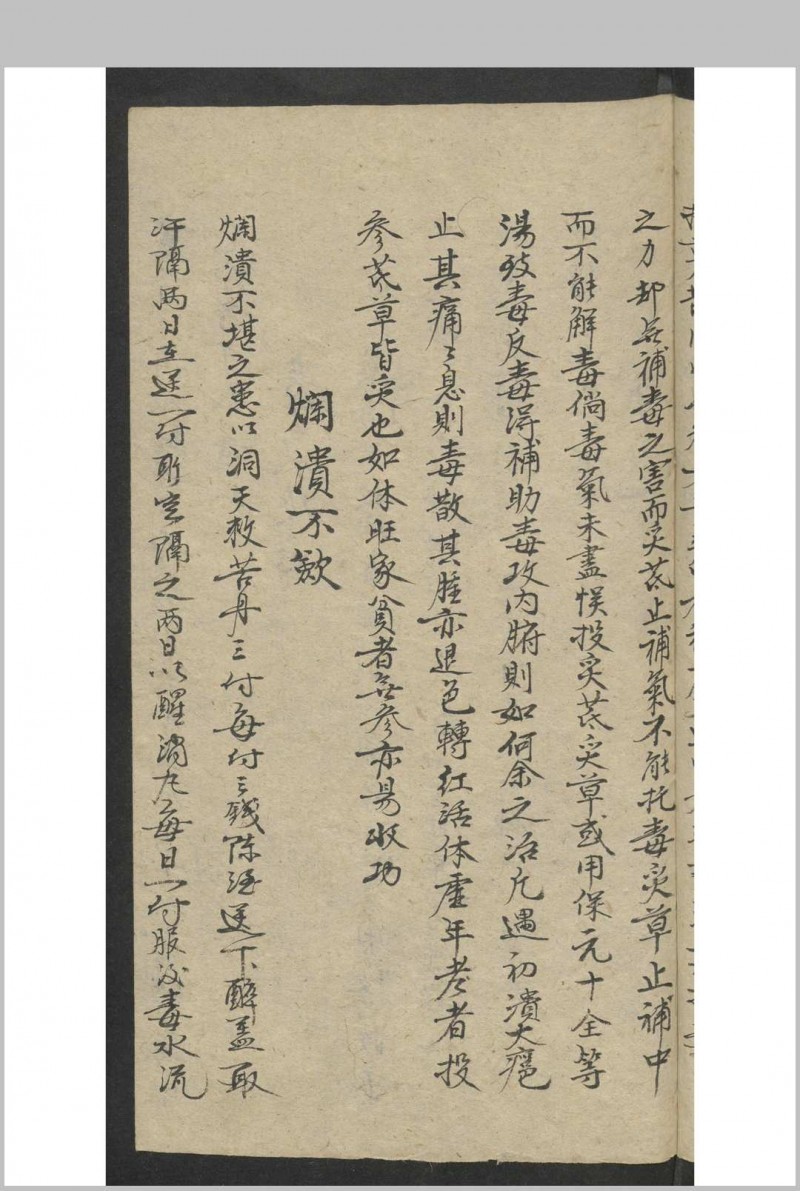 之力却無補毒之害而炙芪止補氣不能托毒炙草止補中
而不能解毒倘毒氣未盡悞投炙芪炙草或用保元十全等
湯致毒反毒得補助毒攻内腑則如何余之治凡遇初潰大癰
止其痛〻息則毒散其腫亦退色轉紅活体虛年老者投
參芪草皆炙也如体旺家貧者無參亦易收功
爛潰不歛
爛潰不堪之患以洞天救苦丹三付每付三錢陈酒送下醉盖取
汗隔两日再送一付所空隔之两日以醒消丸每日一付服後毒水流